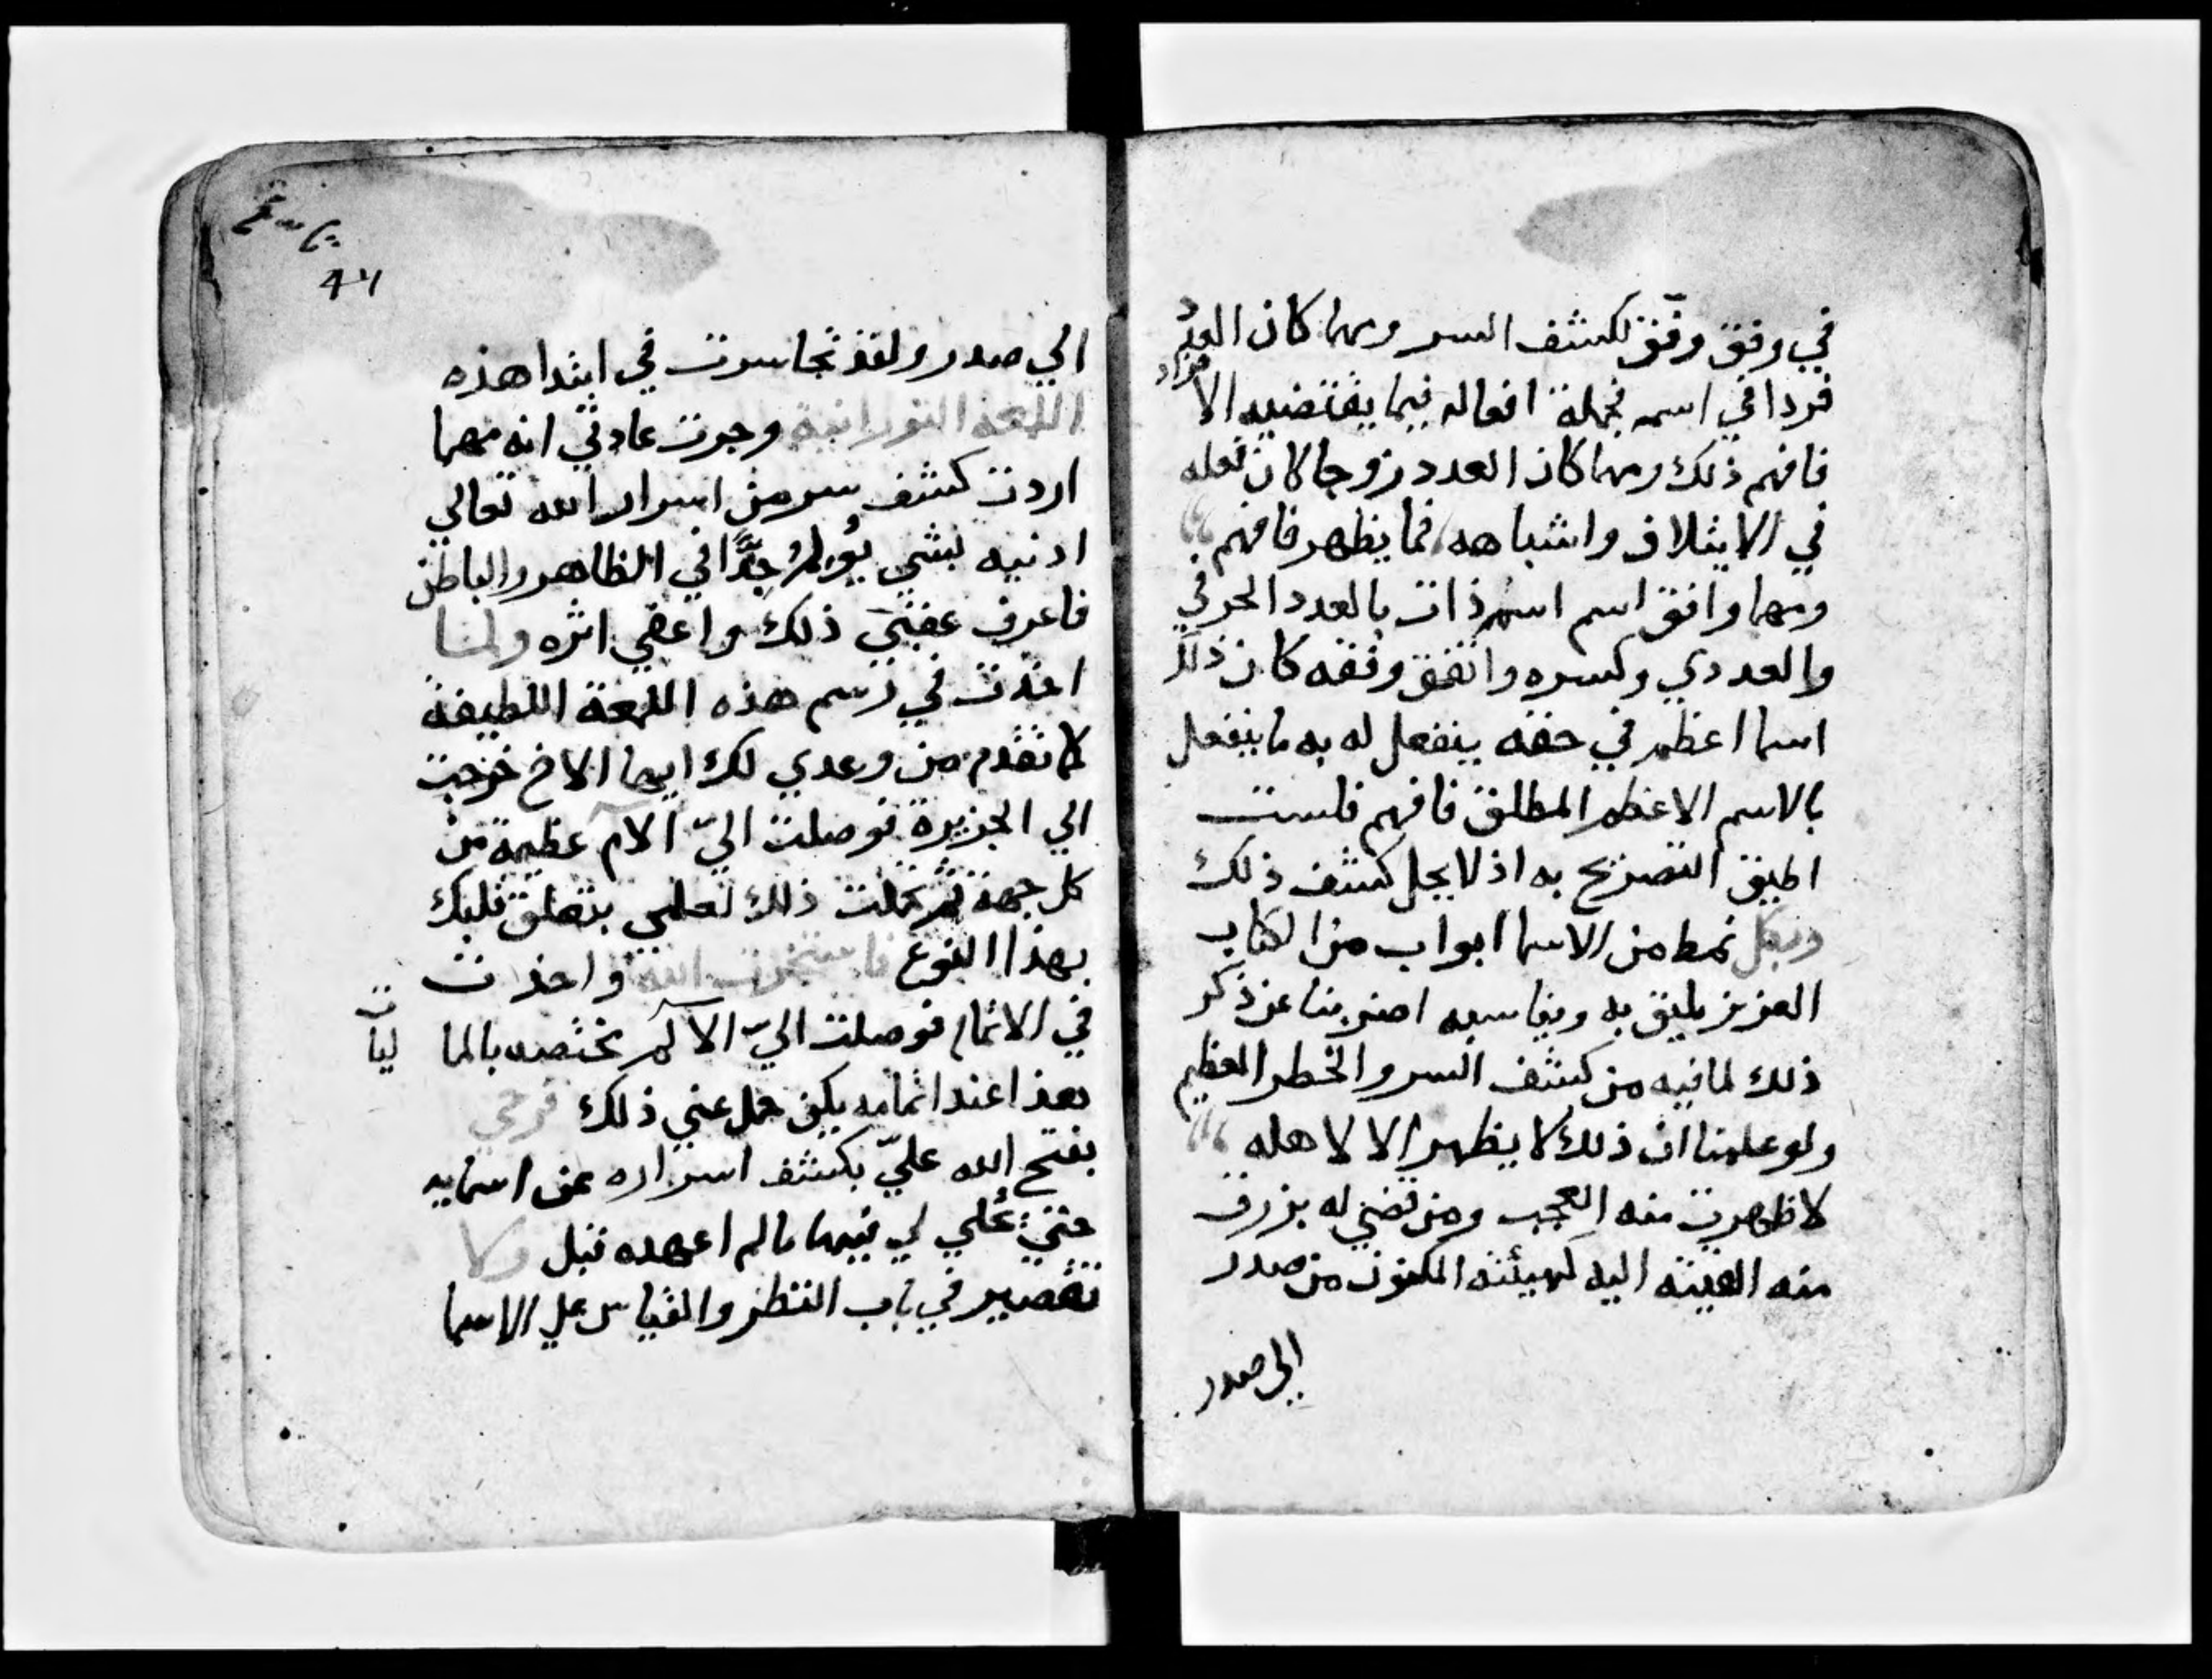 في وفق وفق لكشف السر ومهما كان العدد
فردا في اسم فجملة افعاله فيما يقتضيه الافراد
فافهم ذلك ومهما كان العدد زوجا كان فعله
في الايتلاف واشباهه فما يظهر فافهم
ومهما وافق اسم اسم ذات بالعدد الحرفي
والعددي وكسره واتفق وفقه كان ذلك
اسما اعظم في حقه ينفعل له به ما ينفعل
بالاسم الاعظم المطلق فافهم فلست
اطيق التصريح به اذ لا يحل كشف ذلك
ولكل نمط من الاسما ابواب من الكتاب
العزيز يليق به ويناسبه اضربنا عن ذكر
ذلك لما فيه من كشف السر والخطر العظيم
ولو علمنا ان ذلك لا يظهر الا لاهله
لاظهرت منه العجب ومن قضي له برزق
منه القيته اليه كهيئته المكنون من صدر
الي صدر
الي صدر ولقد تجاسرت في ابتدا هذه
اللمعة النورانية وجرت عادتي انه مهما
اردت كشف سر من اسرار الله تعالي
اذنيه بشي يولم جدا في الظاهر والباطن
فاعرف عقبي ذلك واعفي اثره ولما
اخذت في رسم هذه اللمعة اللطيفة
لما تقدم من وعدي لك ايها الاخ خرجت
الي الجزيرة فوصلت الي الام عظيمة من
كل جهة ثم حملت ذلك لعلمي بتعلق قلبك
بهذا النوع فاستخرت الله واخذت
في الاتمام فوصلت الي الالم مختصه بالماليات
هذا عند اتمامه يكن حمل عني ذلك فرحي
بفتح الله علي بكشف اسراره عن اسمايه
حتي تجلي لي فيها ما لم اعهده قبل ولا
تقصير في باب النظر والقياس علي الاسما